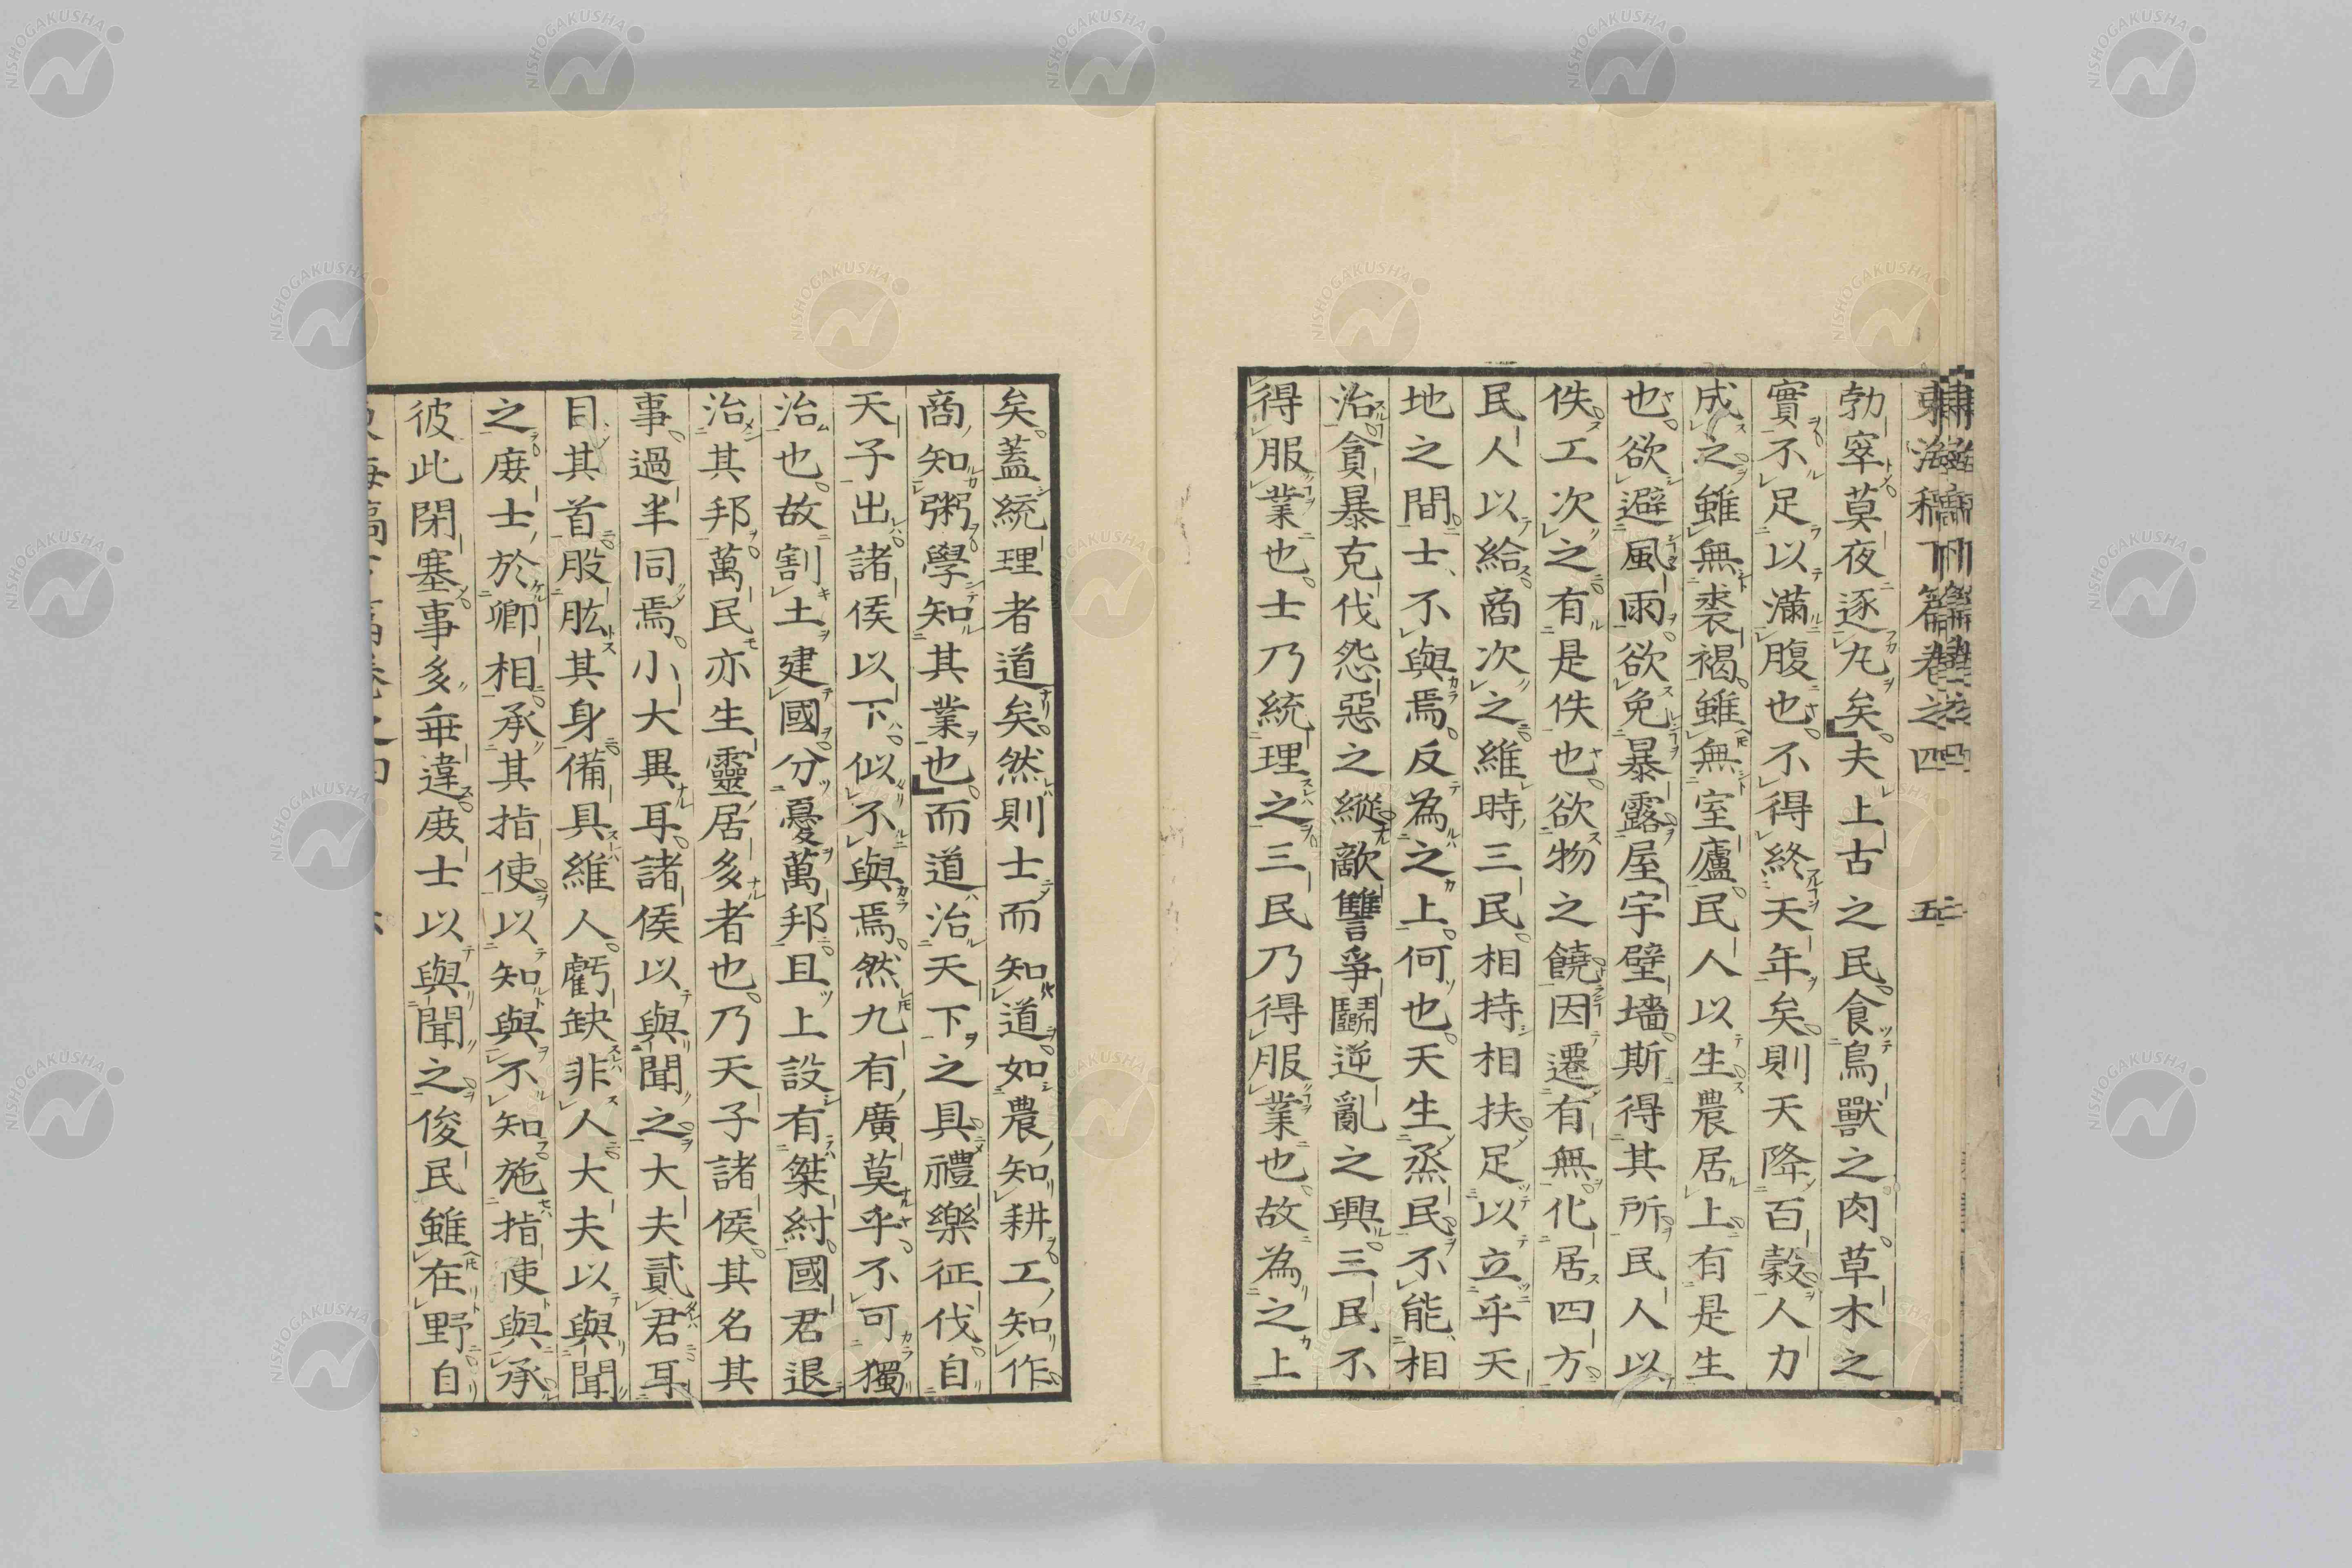 東海稿下篇卷之四　五
勃窣莫夜逐尢矣夫上古之民食鳥獸之肉草木之
實不足以滿腹也不得終天年矣則天降百穀人力
成之雖無裘褐雖無室廬民人以生農居上有是生
也欲避風雨欲免暴露屋宇壁墻斯得其所民人以
佚工次之有是佚也欲物之饒因遷有無化居四方
民人以給商次之維時三民相持相扶足以立乎天
地之間士不與焉反為之上何也天生烝民不能相
治貪暴克伐怨惡之縱敵讐爭鬪逆亂之興三民不
得服業也士乃統理之三民乃得服業也故為之上
矣蓋統理者道矣然則士而知道如農知耕工知作
商知粥學知其業也而道治天下之具禮樂征伐自
天子出諸侯以下似不與焉然九有廣莫乎不可獨
治也故割土建國分憂萬邦且上設有桀紂國君退
治其邦萬民亦生靈居多者也乃天子諸侯其名其
事過半同焉小大異耳諸侯以與聞之大夫貳君耳
目其首股肱其身備具維人虧缺非人大夫以與聞
之庶士於卿相承其指使以知與不知施指使與承
彼此閉塞事多乖違庶士以與聞之俊民雖在野自